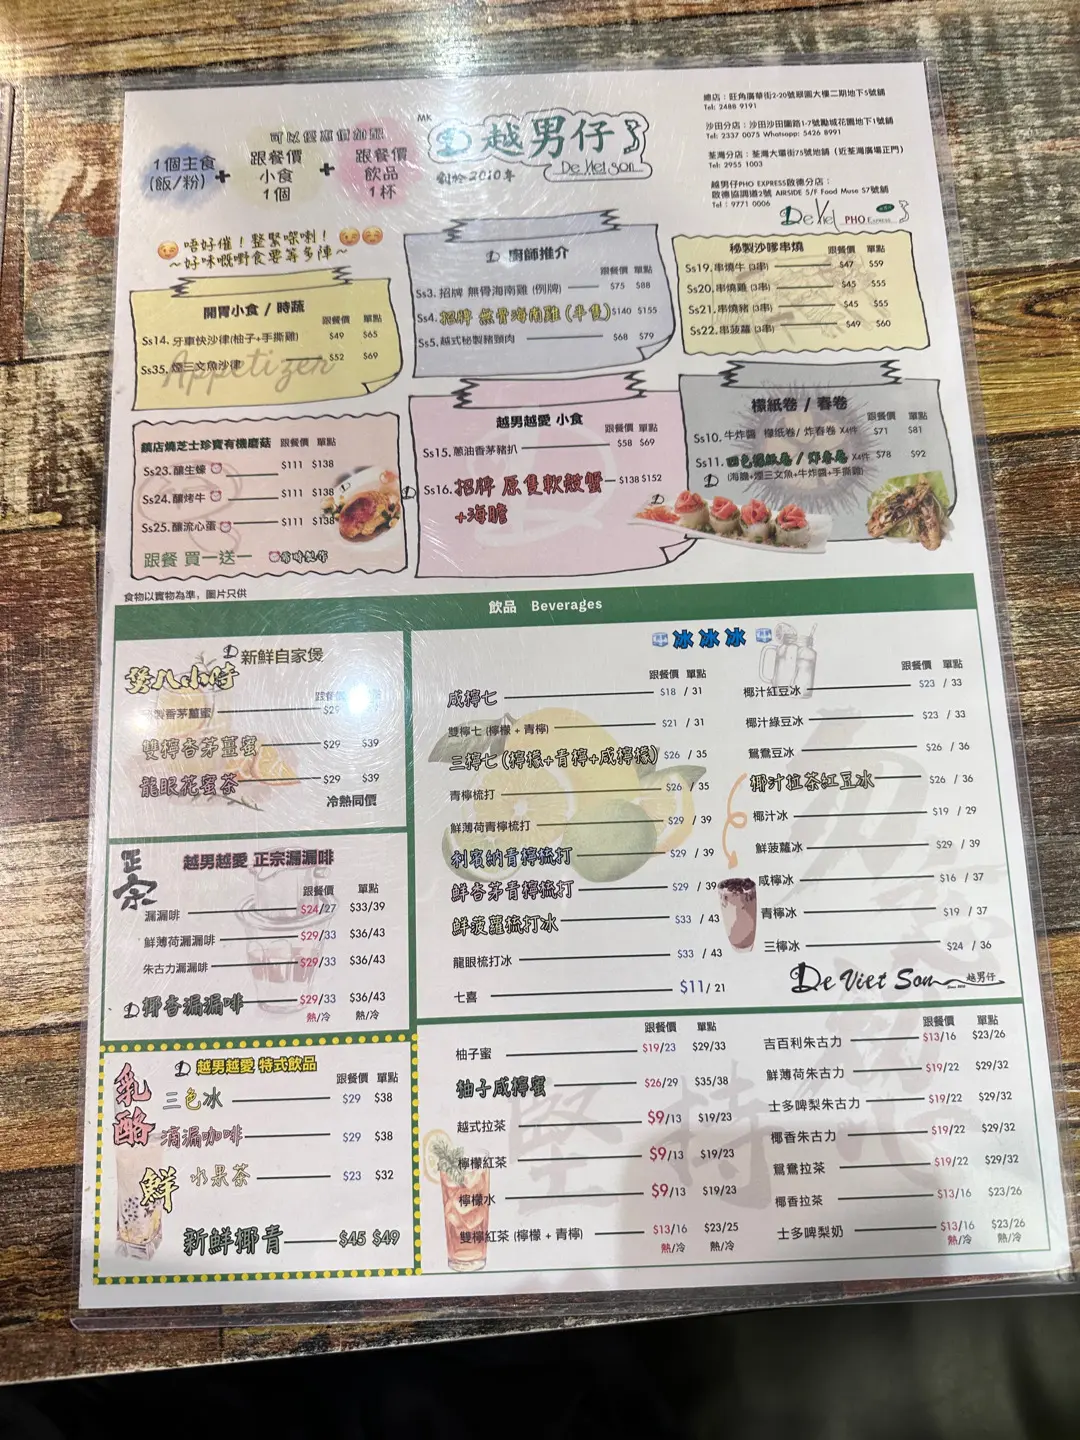 可以優惠價加配
1個主食
(飯/粉)
+
跟餐價
小食
1個
+
跟餐價
飲品
1杯
MK
越男仔
De Viet Son
創於2010年
總店：旺角廣華街2-20號翠園大樓二期地下5號舖
Tel: 2488 9191
沙田分店：沙田沙田圍路1-7號勵城花園地下1號舖
Tel: 2337 0075 Whatsapp: 5426 8991
荃灣分店：荃灣大壩街75號地舖（近荃灣廣場正門）
Tel: 2955 1003
越男仔PHO EXPRESS啟德分店：
啟德協調道2號 AIRSIDE 5/F Food Muse S7號舖
Tel : 9771 0006
De Viet PHO Express
唔好催！整緊㗎喇！
～好味嘅嘢食要等多陣～
開胃小食 / 時蔬
跟餐價 單點
Ss14. 牙車快沙律(柚子+手撕雞) $49 $65
Ss35. 煙三文魚沙律 $52 $69
Appetizer
廚師推介
跟餐價 單點
Ss3. 招牌 無骨海南雞 (例牌) $75 $88
Ss4. 招牌 無骨海南雞 (半隻) $140 $155
Ss5. 越式秘製豬頸肉 $68 $79
秘製沙嗲串燒 跟餐價 單點
Ss19. 串燒牛 (3串) $47 $59
Ss20. 串燒雞 (3串) $45 $55
Ss21. 串燒豬 (3串) $45 $55
Ss22. 串菠蘿 (3串) $49 $60
鎮店燒芝士珍寶有機磨菇 跟餐價 單點
Ss23. 釀生蠔 $111 $138
Ss24. 釀烤牛 $111 $138
Ss25. 釀流心蛋 $111 $138
跟餐 買一送一 需時製作
越男越愛 小食
跟餐價 單點
Ss15. 蔥油香茅豬扒 $58 $69
Ss16. 招牌 原隻軟殼蟹 $138 $152
+海膽
檬紙卷 / 春卷
跟餐價 單點
Ss10. 牛炸醬 檬紙卷/ 炸春卷 X4件 $71 $81
Ss11. 四色檬紙卷 / 炸春卷 X4件 $78 $92
(海膽+煙三文魚+牛炸醬+手撕雞)
食物以實物為準，圖片只供
飲品 Beverages
新鮮自家煲
煲八小時
製香茅薑蜜 $29
雙檸香茅薑蜜 $29 $39
龍眼花蜜茶 $29 $39
冷熱同價
正宗
越男越愛 正宗滴漏啡
跟餐價 單點
滴漏啡 $24/27 $33/39
鮮薄荷滴漏啡 $29/33 $36/43
朱古力滴漏啡 $29/33 $36/43
椰香滴漏啡 $29/33 $36/43
熱/冷 熱/冷
越男越愛 特式飲品
跟餐價 單點
乳酪
三色冰 $29 $38
滴漏咖啡 $29 $38
鮮
水果茶 $23 $32
新鮮椰青 $45 $49
冰冰冰
跟餐價 單點
咸檸七 $18 / 31
雙檸七 (檸檬 + 青檸) $21 / 31
三檸七 (檸檬+青檸+咸檸檬) $26 / 35
青檸梳打 $26 / 35
鮮薄荷青檸梳打 $29 / 39
利賓納青檸梳打 $29 / 39
鮮香茅青檸梳打 $29 / 39
鮮菠蘿梳打冰 $33 / 43
龍眼梳打冰 $33 / 43
七喜 $11/ 21
跟餐價 單點
椰汁紅豆冰 $23 / 33
椰汁綠豆冰 $23 / 33
鴛鴦豆冰 $26 / 36
椰汁拉茶紅豆冰 $26 / 36
椰汁冰 $19 / 29
鮮菠蘿冰 $29 / 39
咸檸冰 $16 / 37
青檸冰 $19 / 37
三檸冰 $24 / 36
De Viet Son 越男仔
跟餐價 單點
柚子蜜 $19/23 $29/33
柚子咸檸蜜 $26/29 $35/38
越式拉茶 $9/13 $19/23
檸檬紅茶 $9/13 $19/23
檸檬水 $9/13 $19/23
雙檸紅茶 (檸檬 + 青檸) $13/16 $23/25
熱/冷 熱/冷
跟餐價 單點
吉百利朱古力 $13/16 $23/26
鮮薄荷朱古力 $19/22 $29/32
士多啤梨朱古力 $19/22 $29/32
椰香朱古力 $19/22 $29/32
鴛鴦拉茶 $19/22 $29/32
椰香拉茶 $13/16 $23/26
士多啤梨奶 $13/16 $23/26
熱/冷 熱/冷
堅持